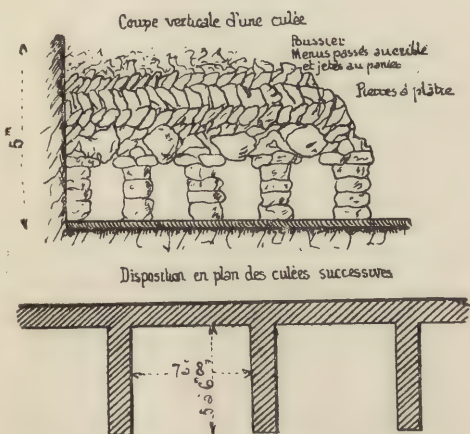 Coupe verticale d'une culée
Poussier
Menus passés au crible
et jetés au panier
Pierres à plâtre
5 m
Disposition en plan des culées successives
7 à 8 m
5 à 6 m